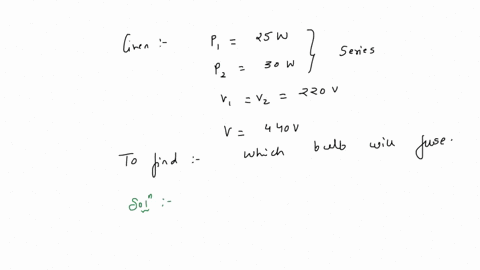 Given :- P₁ = 25 W
P₂ = 30 W } Series
V₁ = V₂ = 220 V
V = 440 V
To find :- which bulb will fuse.
Solⁿ :-